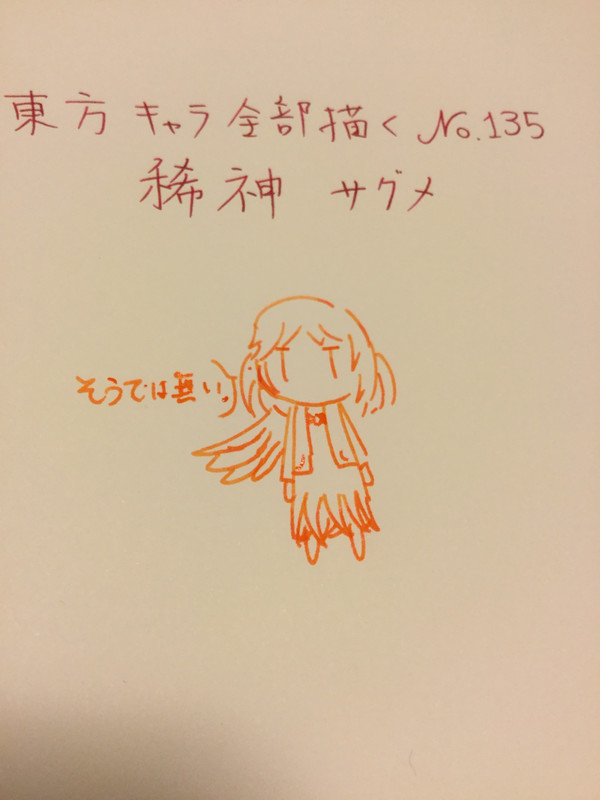 東方キャラ全部描く No.135
稀神 サグメ
そうでは無い。